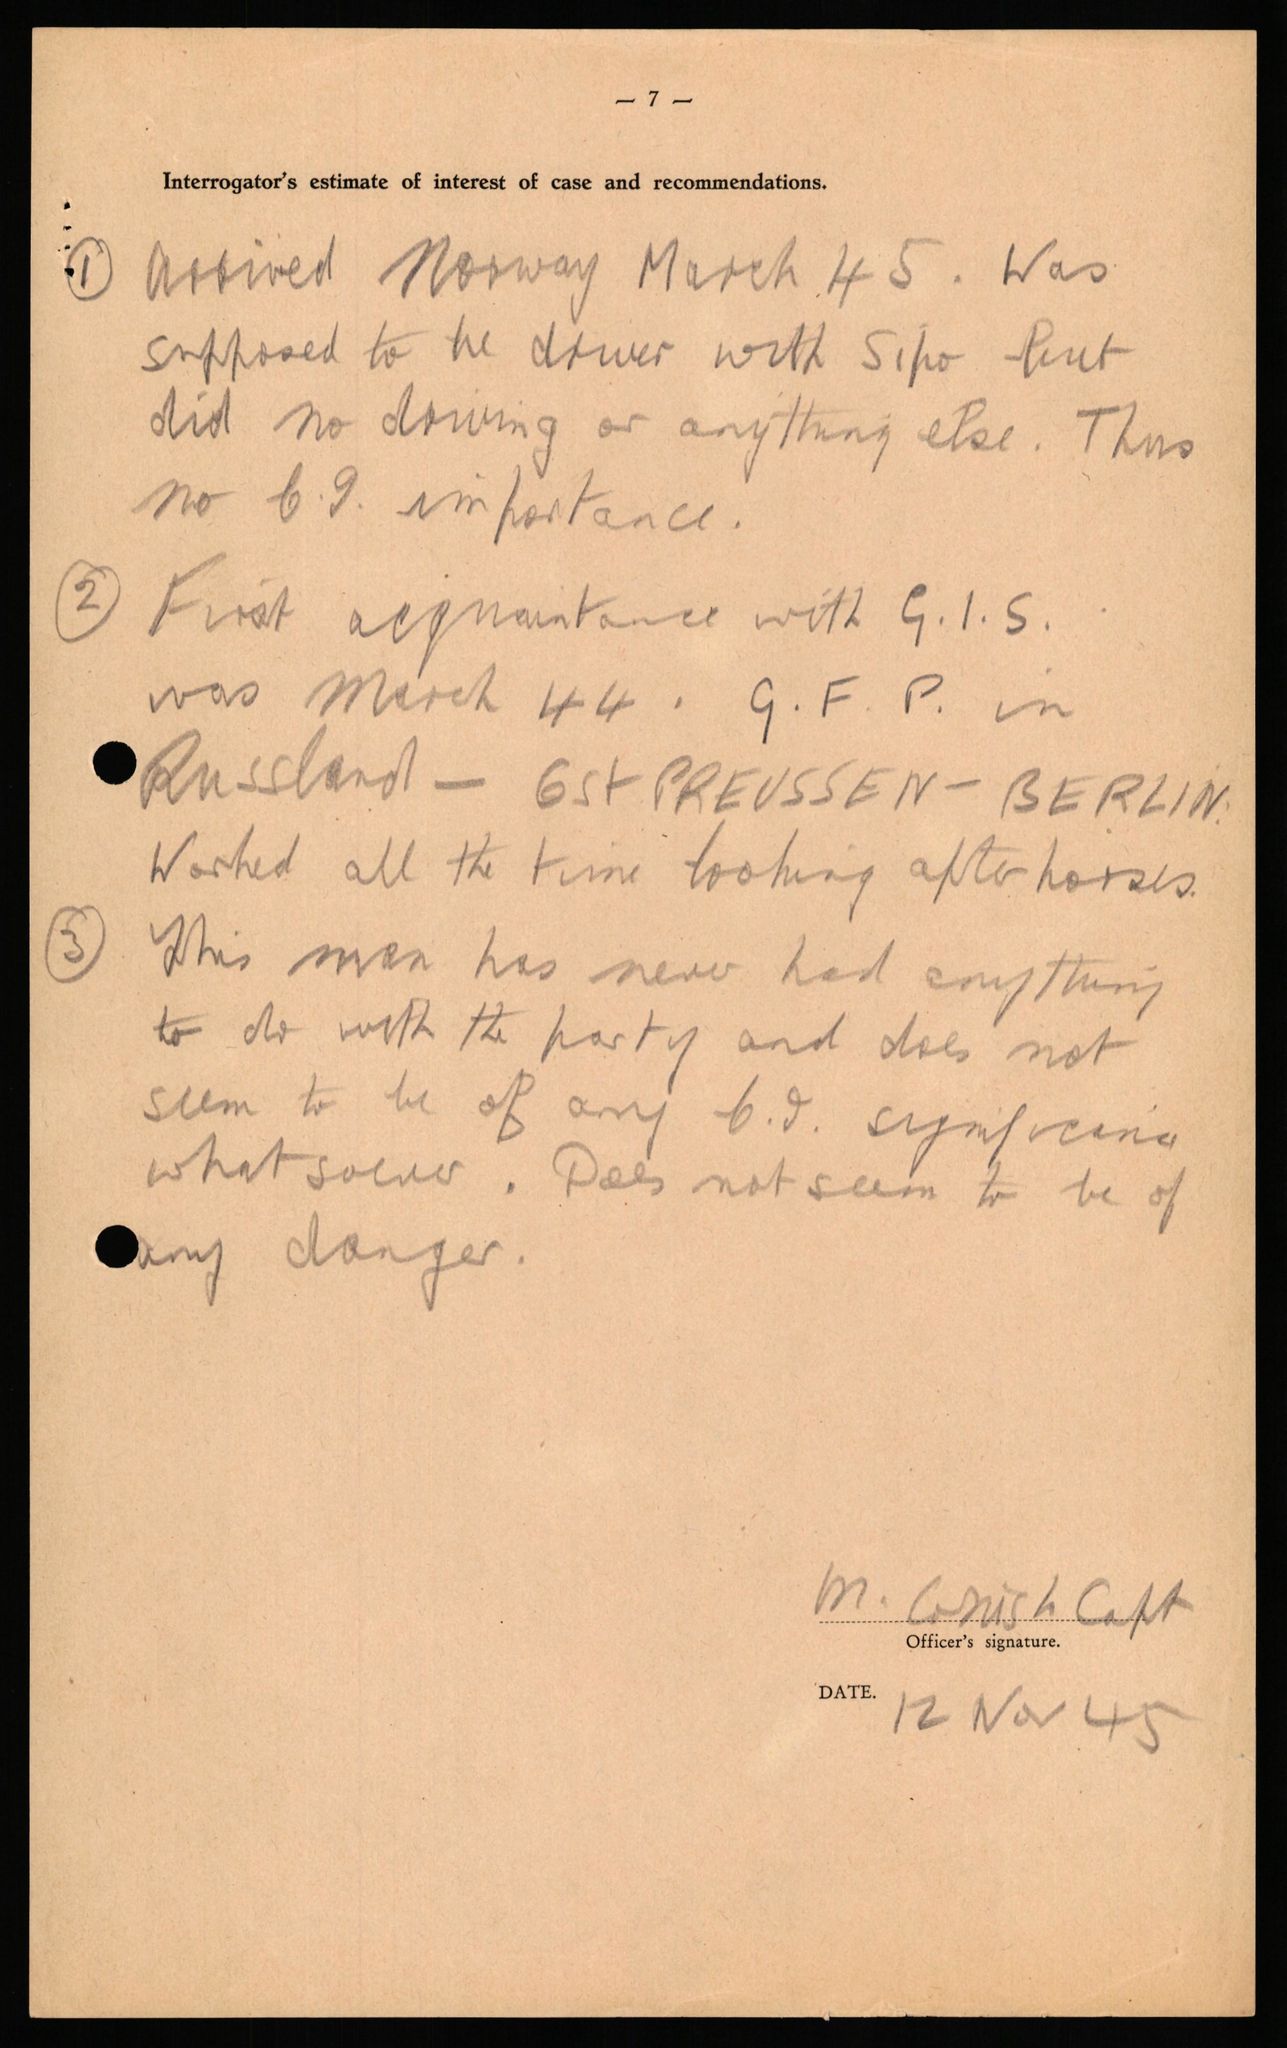 — 7 —
Interrogator's estimate of interest of case and recommendations.
① Arrived Norway March 45. Was
supposed to be driver with Sipo but
did no driving or anything else. Thus
no C.I. importance.
② First acquaintance with G.I.S.
was March 44. G.F.P. in
Russland — OSt PREUSSEN — BERLIN.
Worked all the time looking after horses.
③ This man has never had anything
to do with the party and does not
seem to be of any C.I. significance
whatsoever. Does not seem to be of
any danger.
M. Cornish Capt
Officer's signature.
DATE. 12 Nov 45